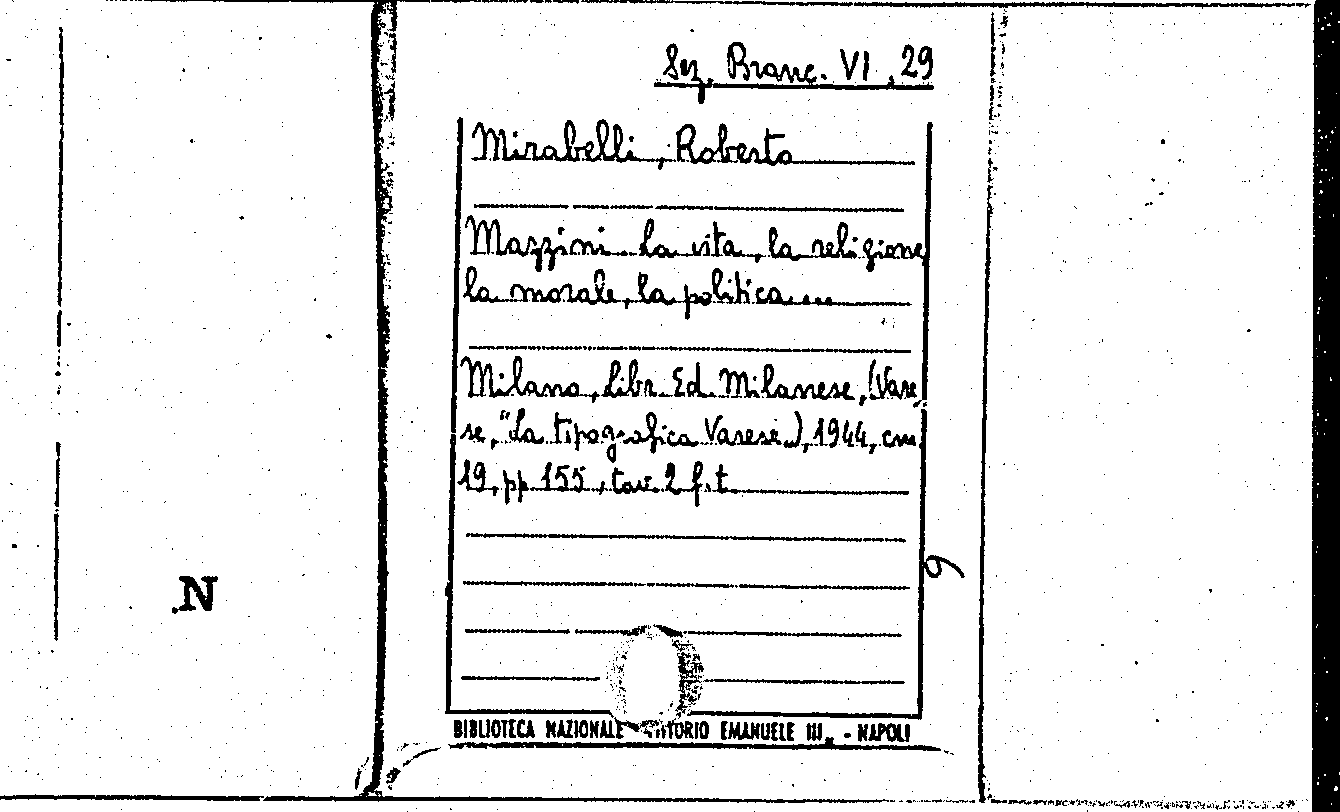 Sez. Branc. VI, 29
Mirabelli, Roberto
Mazzini. la vita, la religione
la morale, la politica....
Milano, Libr. Ed. Milanese, (Vare
se, "La tipografica Varese"), 1944, cm.
19, pp. 155, tav. 2 f. t.
9
N
BIBLIOTECA NAZIONALE VITTORIO EMANUELE III„ - NAPOLI